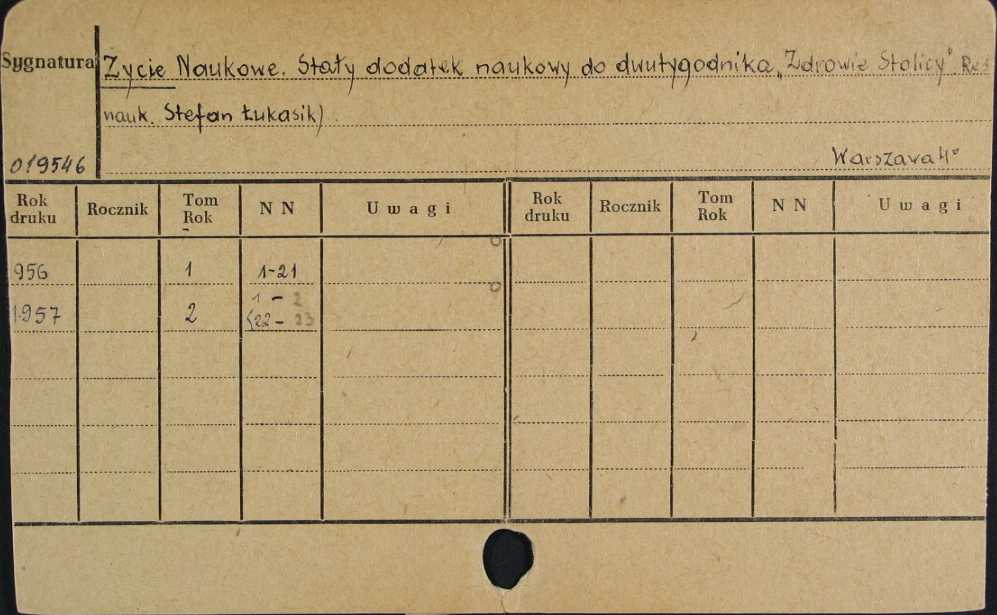 Sygnatura Życie Naukowe. Stały dodatek naukowy do dwutygodnika „Zdrowie Stolicy" Red
nauk. Stefan Łukasik)
019546 Warszawa 4°
Rok druku Rocznik Tom Rok N N Uwagi Rok druku Rocznik Tom Rok N N Uwagi
956 1 1-21
1957 2 1-2
(22-23